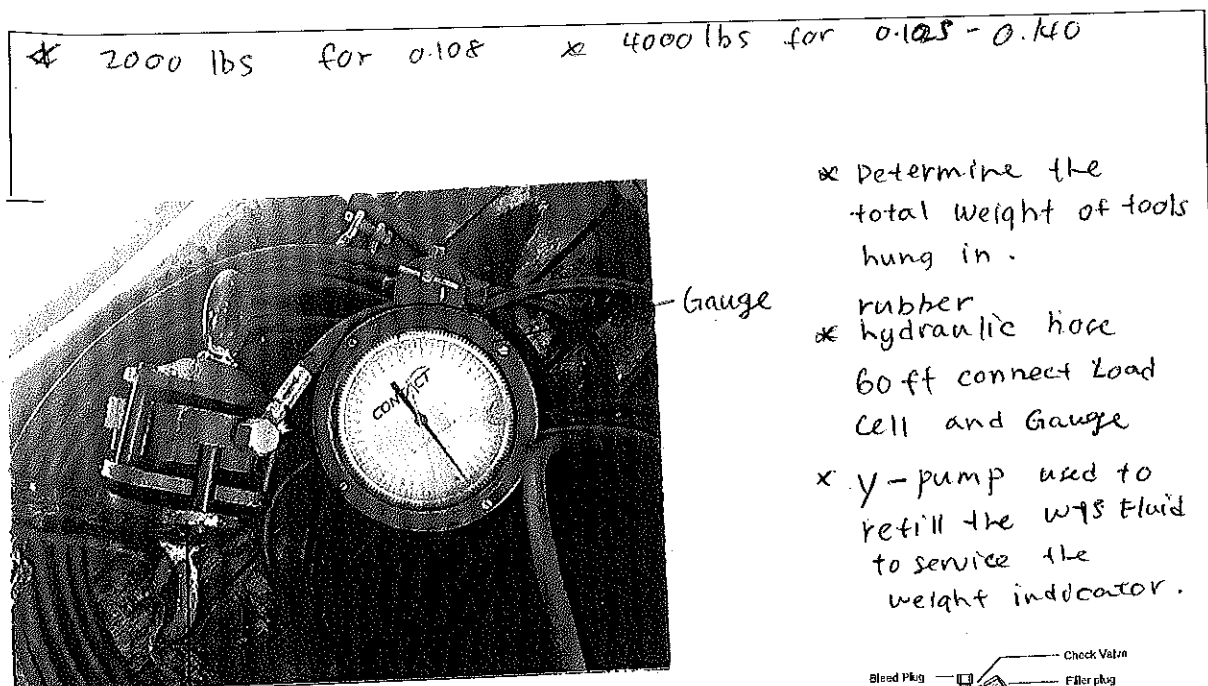 * 2000 lbs for 0.108 * 4000 lbs for 0.125 - 0.140
* Determine the
total weight of tools
hung in.
Gauge
rubber
* hydraulic hose
60 ft connect Load
cell and Gauge
* y-pump used to
refill the Fluid
to service the
weight indicator.
Check Valve
Bleed Plug
Filler plug